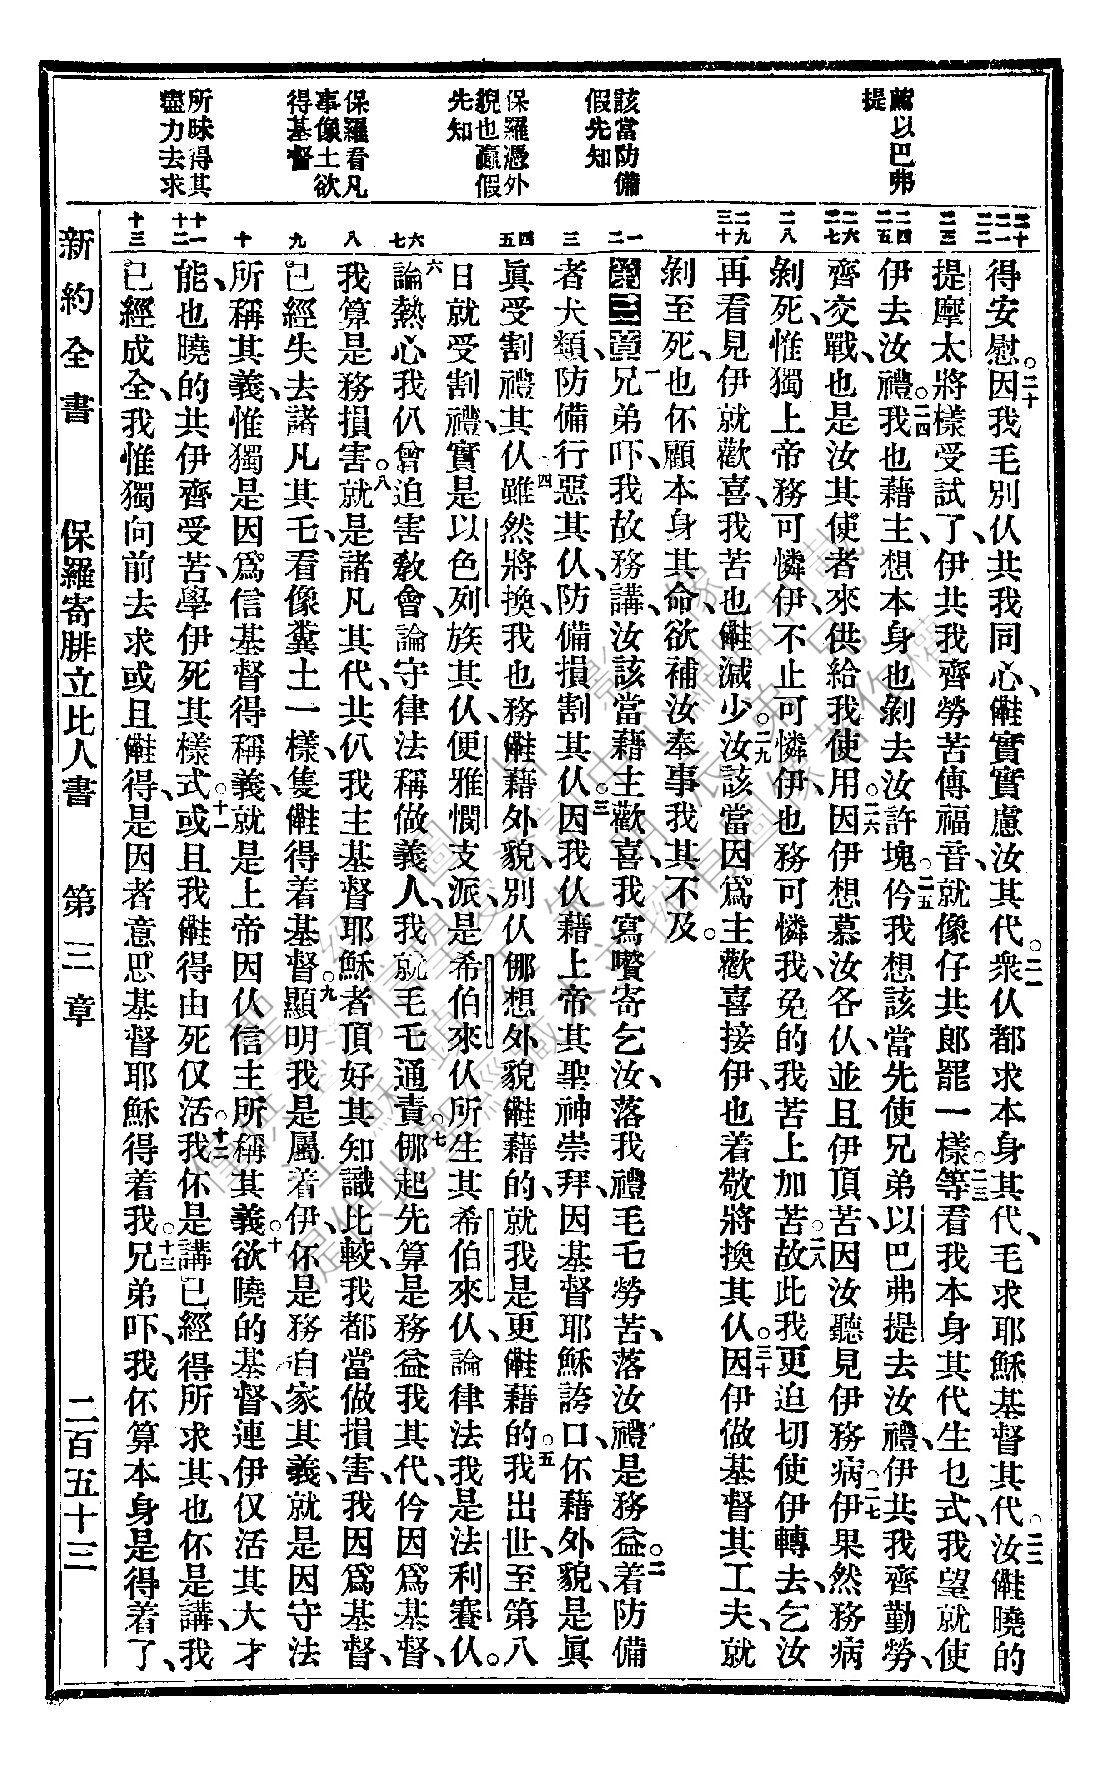 薦以巴弗
提
該當防備
假先知
保羅憑外
貌也贏假
先知
保羅看凡
事像土欲
得基督
所昧得其
盡力去求
二十
二一
二二
二三
二四
二五
二六
二七
二八
二九
三十
一
二
三
四
五
六
七
八
九
十
十一
十二
十三
得安慰。二十因我毛別仈共我同心、𣍐實實慮汝其代。二一衆仈都求本身其代、毛求耶穌基督其代。二二汝𣍐曉的
提摩太將樣受試了、伊共我齊勞苦傳福音、就像仔共郎罷一樣。二三等看我本身其代生乜式、我望就使
伊去汝禮。二四我也藉主、想本身也剝去汝許塊。二五仱我想該當先使兄弟、以巴弗提去汝禮、伊共我齊勤勞、
齊交戰、也是汝其使者、來供給我使用。二六因伊想慕汝各仈、並且伊頂苦、因汝聽見伊務病。二七伊果然務病
剝死、惟獨上帝務可憐伊、不止可憐伊、也務可憐我、免的我苦上加苦。二八故此我更迫切使伊轉去、乞汝
再看見伊就歡喜、我苦也𣍐減少。二九汝該當因爲主歡喜接伊、也着敬將換其仈。三十因伊做基督其工夫、就
剝至死、也伓顧本身其命、欲補汝奉事我其不及。
第三章一兄弟吓、我故務講、汝該當藉主歡喜、我寫嚽寄乞汝、落我禮毛乇勞苦、落汝禮是務益。二着防備
者犬類、防備行惡其仈、防備損割其仈。三因我仈藉上帝其聖神崇拜、因基督耶穌誇口、伓藉外貌、是眞
眞受割禮其仈。四雖然將換、我也務𣍐藉外貌、別仈倻想外貌𣍐藉的、就我是更𣍐藉的。五我出世至第八
日就受割禮、實是以色列族其仈、便雅憫支派、是希伯來仈所生其希伯來仈、論律法我是法利賽仈。
六論熱心我仈曾迫害敎會、論守律法稱做義人、我就毛乇通責。七倻起先算是務益我其代、仱因爲基督、
我算是務損害。八就是諸凡其代、共仈我主基督耶穌者頂好其知識比較、我都當做損害、我因爲基督、
已經失去諸凡其乇、看像糞土一樣、隻𣍐得着基督。九顯明我是屬着伊、伓是務自家其義、就是因守法
所稱其義、惟獨是因爲信基督得稱義、就是上帝因仈信主所稱其義。十欲曉的基督、連伊復活其大才
能、也曉的共伊齊受苦、學伊死其樣式、十一或且我𣍐得由死復活。十二我伓是講已經得所求其、也伓是講、我
已經成全、我惟獨向前去求、或且𣍐得、是因者意思、基督耶穌得着我。十三兄弟吓、我伓算本身是得着了、
新約全書　保羅寄腓立比人書　第三章　二百五十三